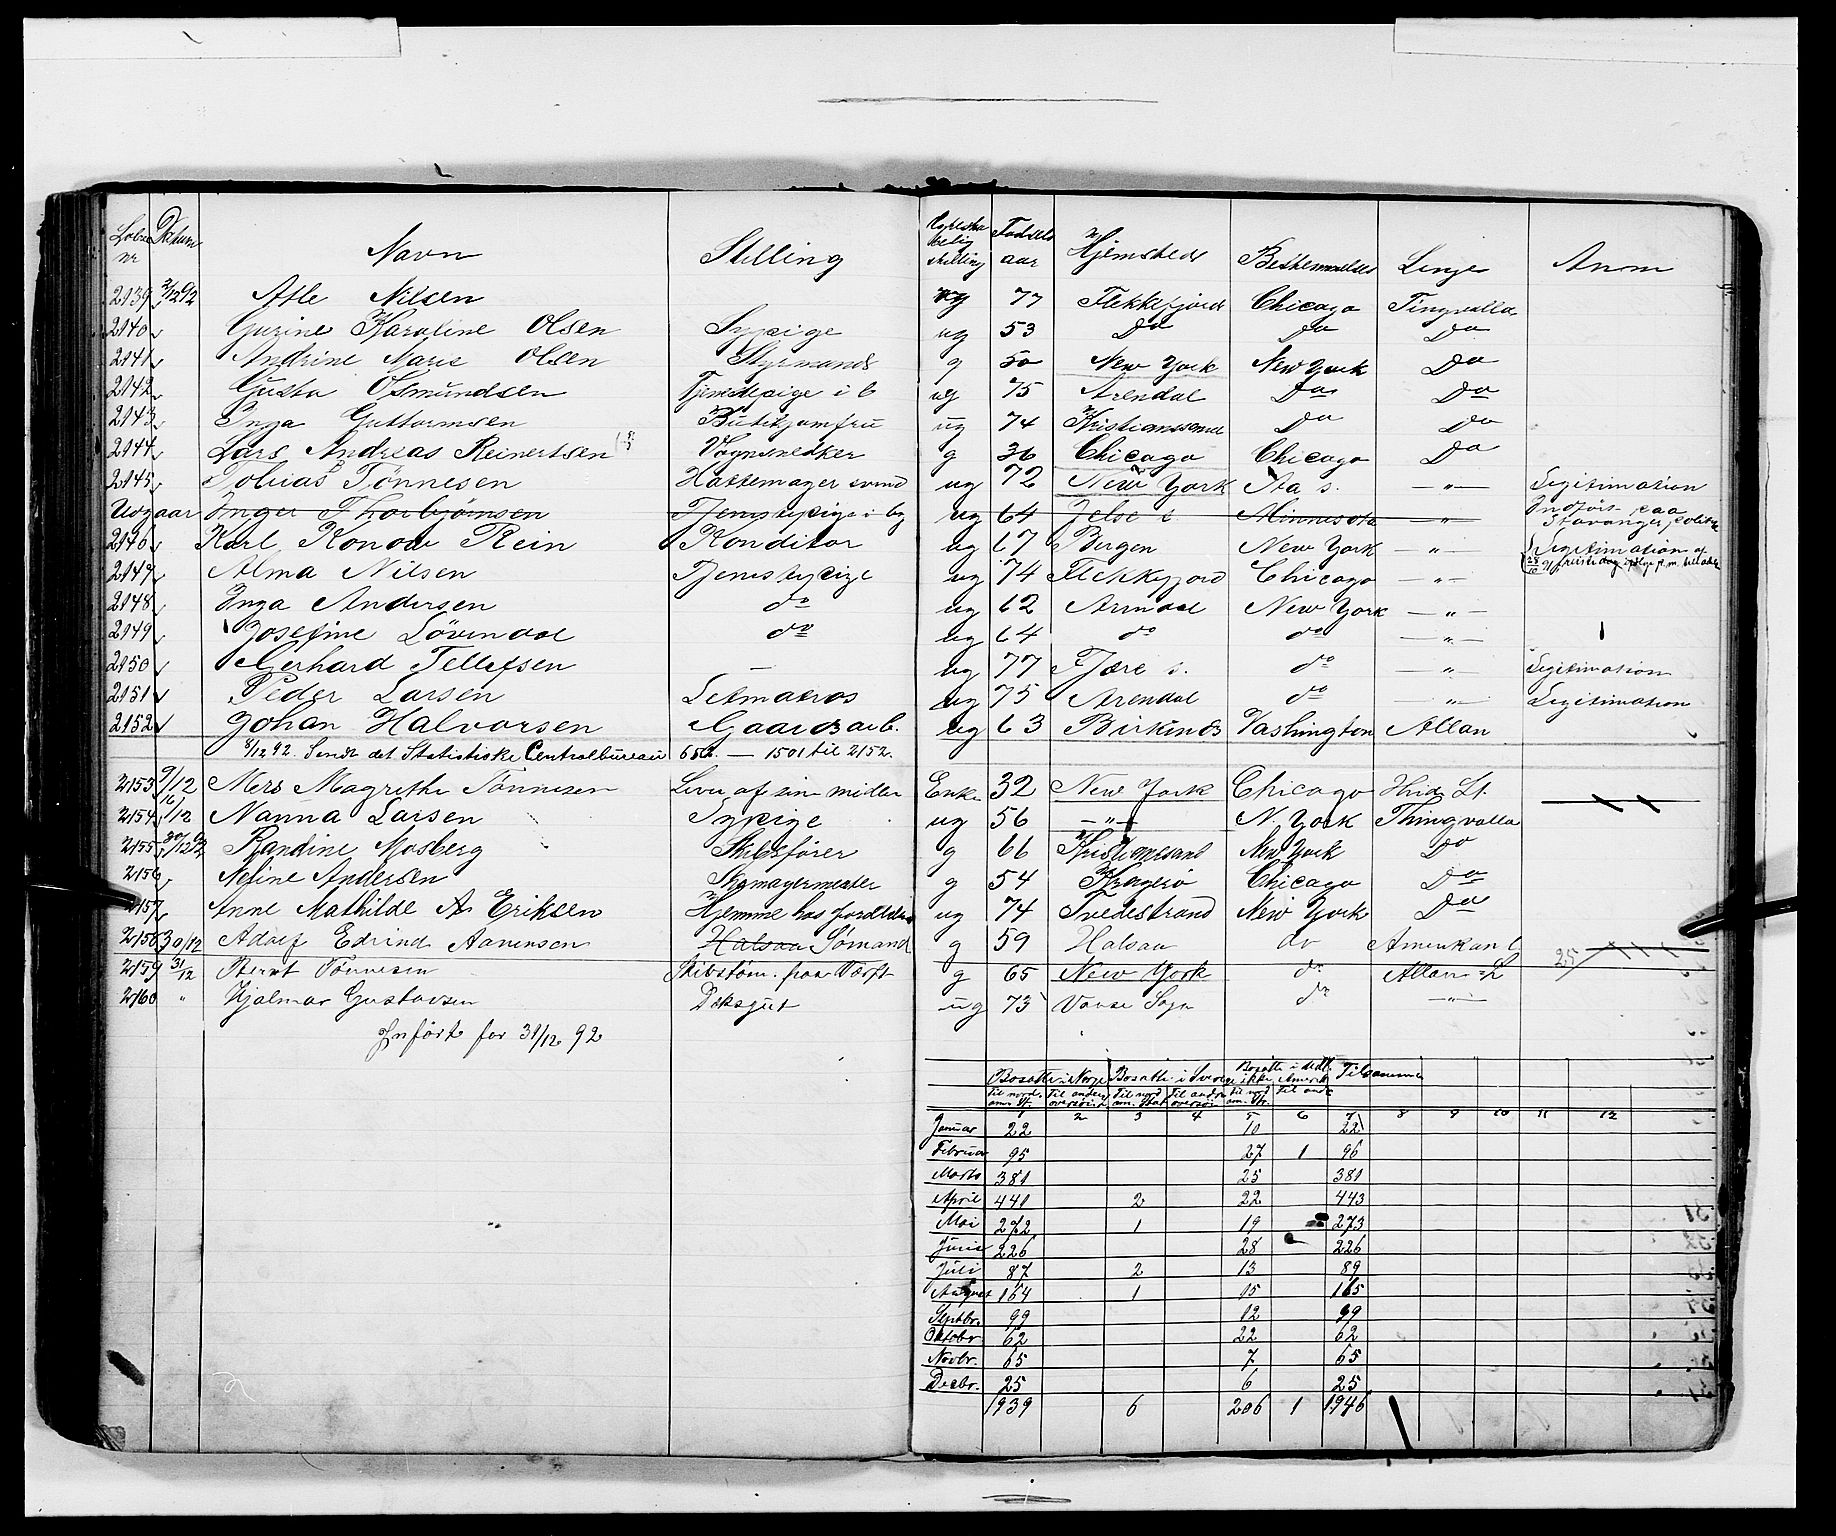 Løbe nr Datum Navn Stilling Ægteska belig stilling Fødsels aar Hjemsted Bestemmelses Linje Anm
2139 2/12 92 Atle Nilsen ug 77 Flekkefjord Chicago Tingvalla
2140 Gurine Karoline Olsen Sypige ug 53 Do Do Do
2141 Andrine Marie Olsen Styrmands g 50 New York New York Do
2142 Gusta Osmundsen Tjenestepige i b ug 75 Arendal Do Do
2143 Inga Guttormsen Butikjomfru ug 74 Kristianssand Do Do
2144 Lars Andreas Reinertsen Vognsnedker g 36 Chicago Chicago Do
2145 Tobias Tönnesen Hattemager svend ug 72 New York Ita s. — " — Legitimation
Udgaar Inger Thorbjörnsen Tjenestepige i by ug 64 Jelse s. Minnesota — " — Indført paa Stavanger politik
2146 Karl Konow Rein Konditor ug 67 Bergen New York — " — Legitimation af
2147 Alma Nilsen Tjenestepige ug 74 Flekkefjord Chicago — " —
2148 Inga Andersen do ug 62 Arendal New York — " —
2149 Josefine Lövendal do ug 64 do do — " —
2150 Gerhard Tellefsen — ug 77 Fjære s. do — " Legitimation
2151 Peder Larsen Letmatros ug 75 Arendal do — " — Legitimation
2152 Johan Halvorsen Gaardsarb. ug 63 Birkends Vashington Allan
8/12 92. Sendt det Statistiske Centralbureau 652 — 1501 til 2152.
2153 9/12 Mers Magrethe Tönnesen Lever af sine midler Enke 32 New York Chicago Hvid St.
2154 16/12 Nanna Larsen Sypige ug 56 — " — N. York Thingvalla
2155 20/12 92 Randine Mosberg Skibsfører g 66 Kristianssand New York Do
2156 Nefine Andersen Skomagermester g 54 Kragerö Chicago Do
2157 Anne Mathilde A Eriksen Hjemme hos foreldre ug 74 Tvedestrand New York Do
2158 30/12 Adolf Edvind Aanensen Halsaa Sømand g 59 Halsaa do Amerikan L 25
2159 31/12 Bernt Tönnesen Skibstøm. paa Værft g 65 New York do Allan-L
2160 " Hjalmar Gustavsen Deksgut ug 73 Vanse Sogn do — " —
Jnført for 31/12 92
Bosatte i Norge Bosatte i Sverige Bosatte i ikke Amerik Tilsammen
til nord. am. St. til anden oversöi til nord am. Stat til andre oversöi til nord am. Str. til andr
1 2 3 4 5 6 7 8 9 10 11 12
Januar 22 10 22
Februar 95 27 1 96
Marts 381 25 381
April 441 2 22 443
Mai 272 1 19 273
Juni 226 28 226
Juli 87 2 13 89
August 164 1 15 165
Septbr. 99 12 99
Oktobr. 62 22 62
Novbr. 65 7 65
Decbr. 25 6 25
1939 6 206 1 1946